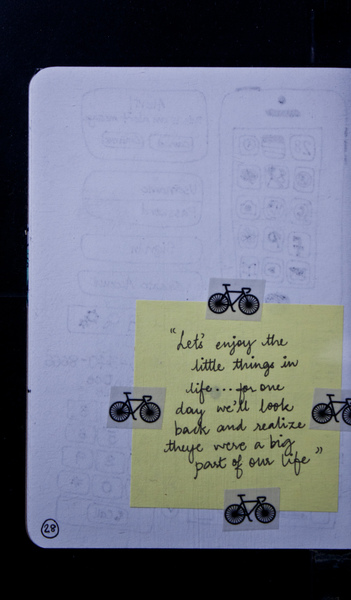 "Let's enjoy the
little things in
life... for one
day we'll look
back and realize
theye were a big
part of our life"
28